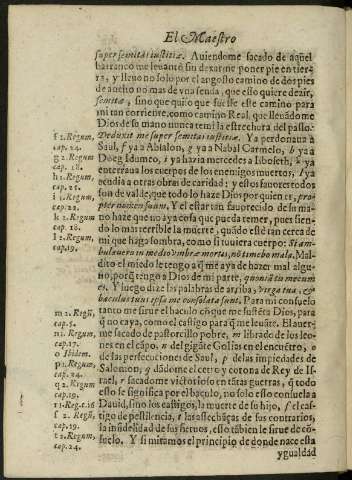 El Maestro
super semitas iustitiæ. Auiendome sacado de aq̃uel
barranco me leuantó sin dexarme poner pie en tier-
ra, y lleuo no solo por el angosto camino de dos pies
de ancho no mas de vna senda, que esso quiere dezir,
semitæ, sino que quiso que fuesse este camino para
mi tan corriente, como camino Real, que lleuãdo me
Dios de su mano nunca temi la estrechura del passo.
Deduxit me super semitas iustitiæ. Ya perdonaua à
Saul, f ya a Absalon, g ya a Nabal Carmelo, h ya à
Doeg Idumeo, i ya hazia mercedes a Isboseth, k ya
enterraua los cuerpos de los enemigos muertos, l ya
acudia a otras obras de caridad; y estos fauores todos
son de valde, que todo lo haze Dios por quien es, pro-
pter nomen suum. Y el estar tan fauorecido de su ma-
no haze que no aya cosa que pueda temer, pues sien-
do lo mas terrible la muerte, quãdo estè tan cerca de
mi que haga sombra, como si tuuiera cuerpo: Si am-
bulauero in medio vmbræ mortis, nõ timebo mala. Mal-
dito el miedo le tengo a q̃ me aya de hazer mal algu-
no, porq̃ tengo a Dios de mi parte, quoniã tu mecum
es. Y luego dize las palabras de arriba, virga tua, et
baculus tuus ipsa me consolata sunt. Para mi consuelo
tanto me sirue el baculo cõ que me sustẽta Dios, para
q̃ no caya, como el castigo para q̃ me leuãte. El auer-
me sacado de pastorcillo pobre, m librado de los leo-
nes en el cãpo, n del gigãte Golias en el encuẽtro, o
de las persecuciones de Saul, p de las impiedades de
Salomon; q dãdome el cetro y corona del Rey de Is-
rael, r sacadome victorioso en tãtas guerras, q̃ todo
esso se significa por el baculo, no solo esso consuela a
Dauid, sino los castigos, la muerte de su hijo, s el cas-
tigo de pestilencia, t las assechãças de sus contrarios,
la infidelidad de sus sieruos, esso tãbien le sirue de cõ-
suelo. Y si miramos el principio de donde nace esta
ygualdad
f 2. Regum,
cap. 24.
g 2. Regum
cap. 18.
h 1. Regum,
cap. 25.
i 1. Regum,
cap. 22.
k 2. Regum
cap. 18.
l 2. Regum,
cap. 19.
m 2. Regũ,
cap. 5.
n 1. Regum,
cap. 17.
o Ibidem.
p 1. Regum,
cap. 24.
q 2. Regum
cap. 19.
r 1. Reg. c. 16
s 2. Regũ,
cap. 19.
t 2. Regum,
cap. 24.